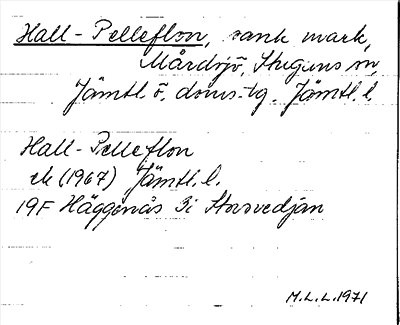 Hall-Pelleflon, sank mark,
Mårdsjö, Stuguns sn,
Jämtl. ö. doms-tg. Jämtl. l.
Hall-Pelleflon
ek (1967) Jämtl. l.
19F Häggenås 3i Storsvedjan
M.L.L. 1971